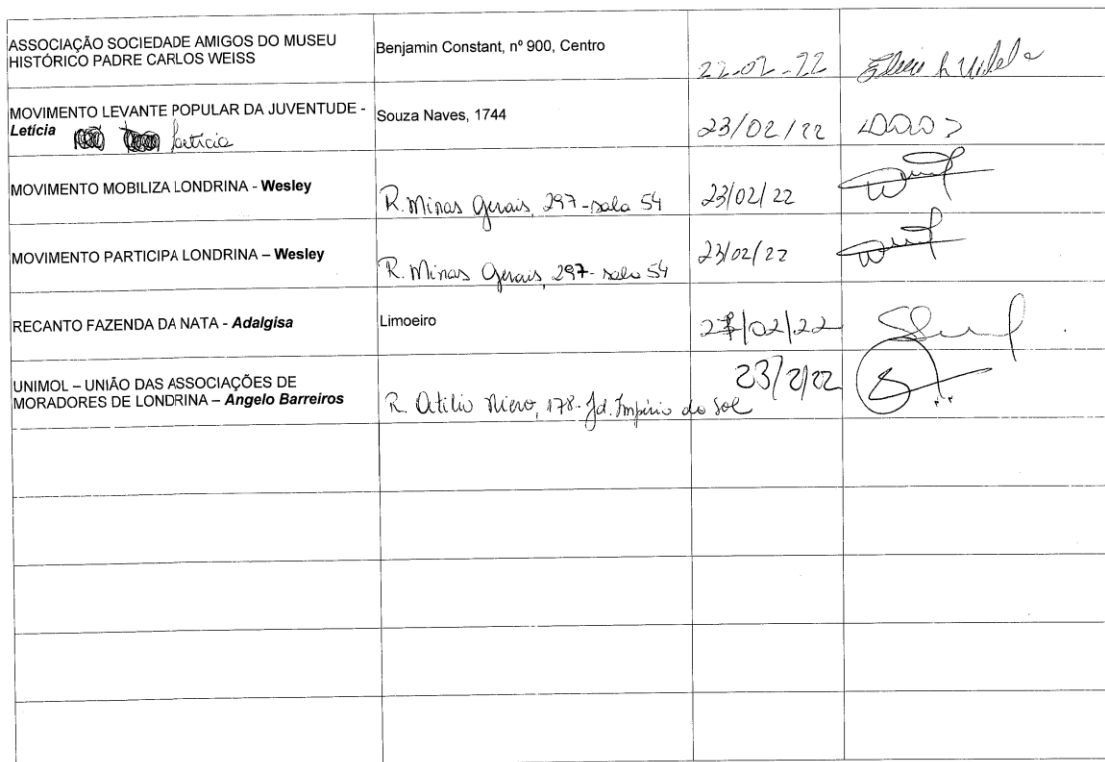 ASSOCIAÇÃO SOCIEDADE AMIGOS DO MUSEU
HISTÓRICO PADRE CARLOS WEISS
Benjamin Constant, nº 900, Centro
22-02-22
MOVIMENTO LEVANTE POPULAR DA JUVENTUDE -
Letícia Letícia
Souza Naves, 1744
23/02/22
MOVIMENTO MOBILIZA LONDRINA - Wesley
R. Minas Gerais, 297 - sala 54
23/02/22
MOVIMENTO PARTICIPA LONDRINA – Wesley
R. Minas Gerais, 297 - sala 54
23/02/22
RECANTO FAZENDA DA NATA - Adalgisa
Limoeiro
/02/22
UNIMOL – UNIÃO DAS ASSOCIAÇÕES DE
MORADORES DE LONDRINA – Angelo Barreiros
R. Atilio Niero, 178 - Jd. Império do Sol
23/2/22